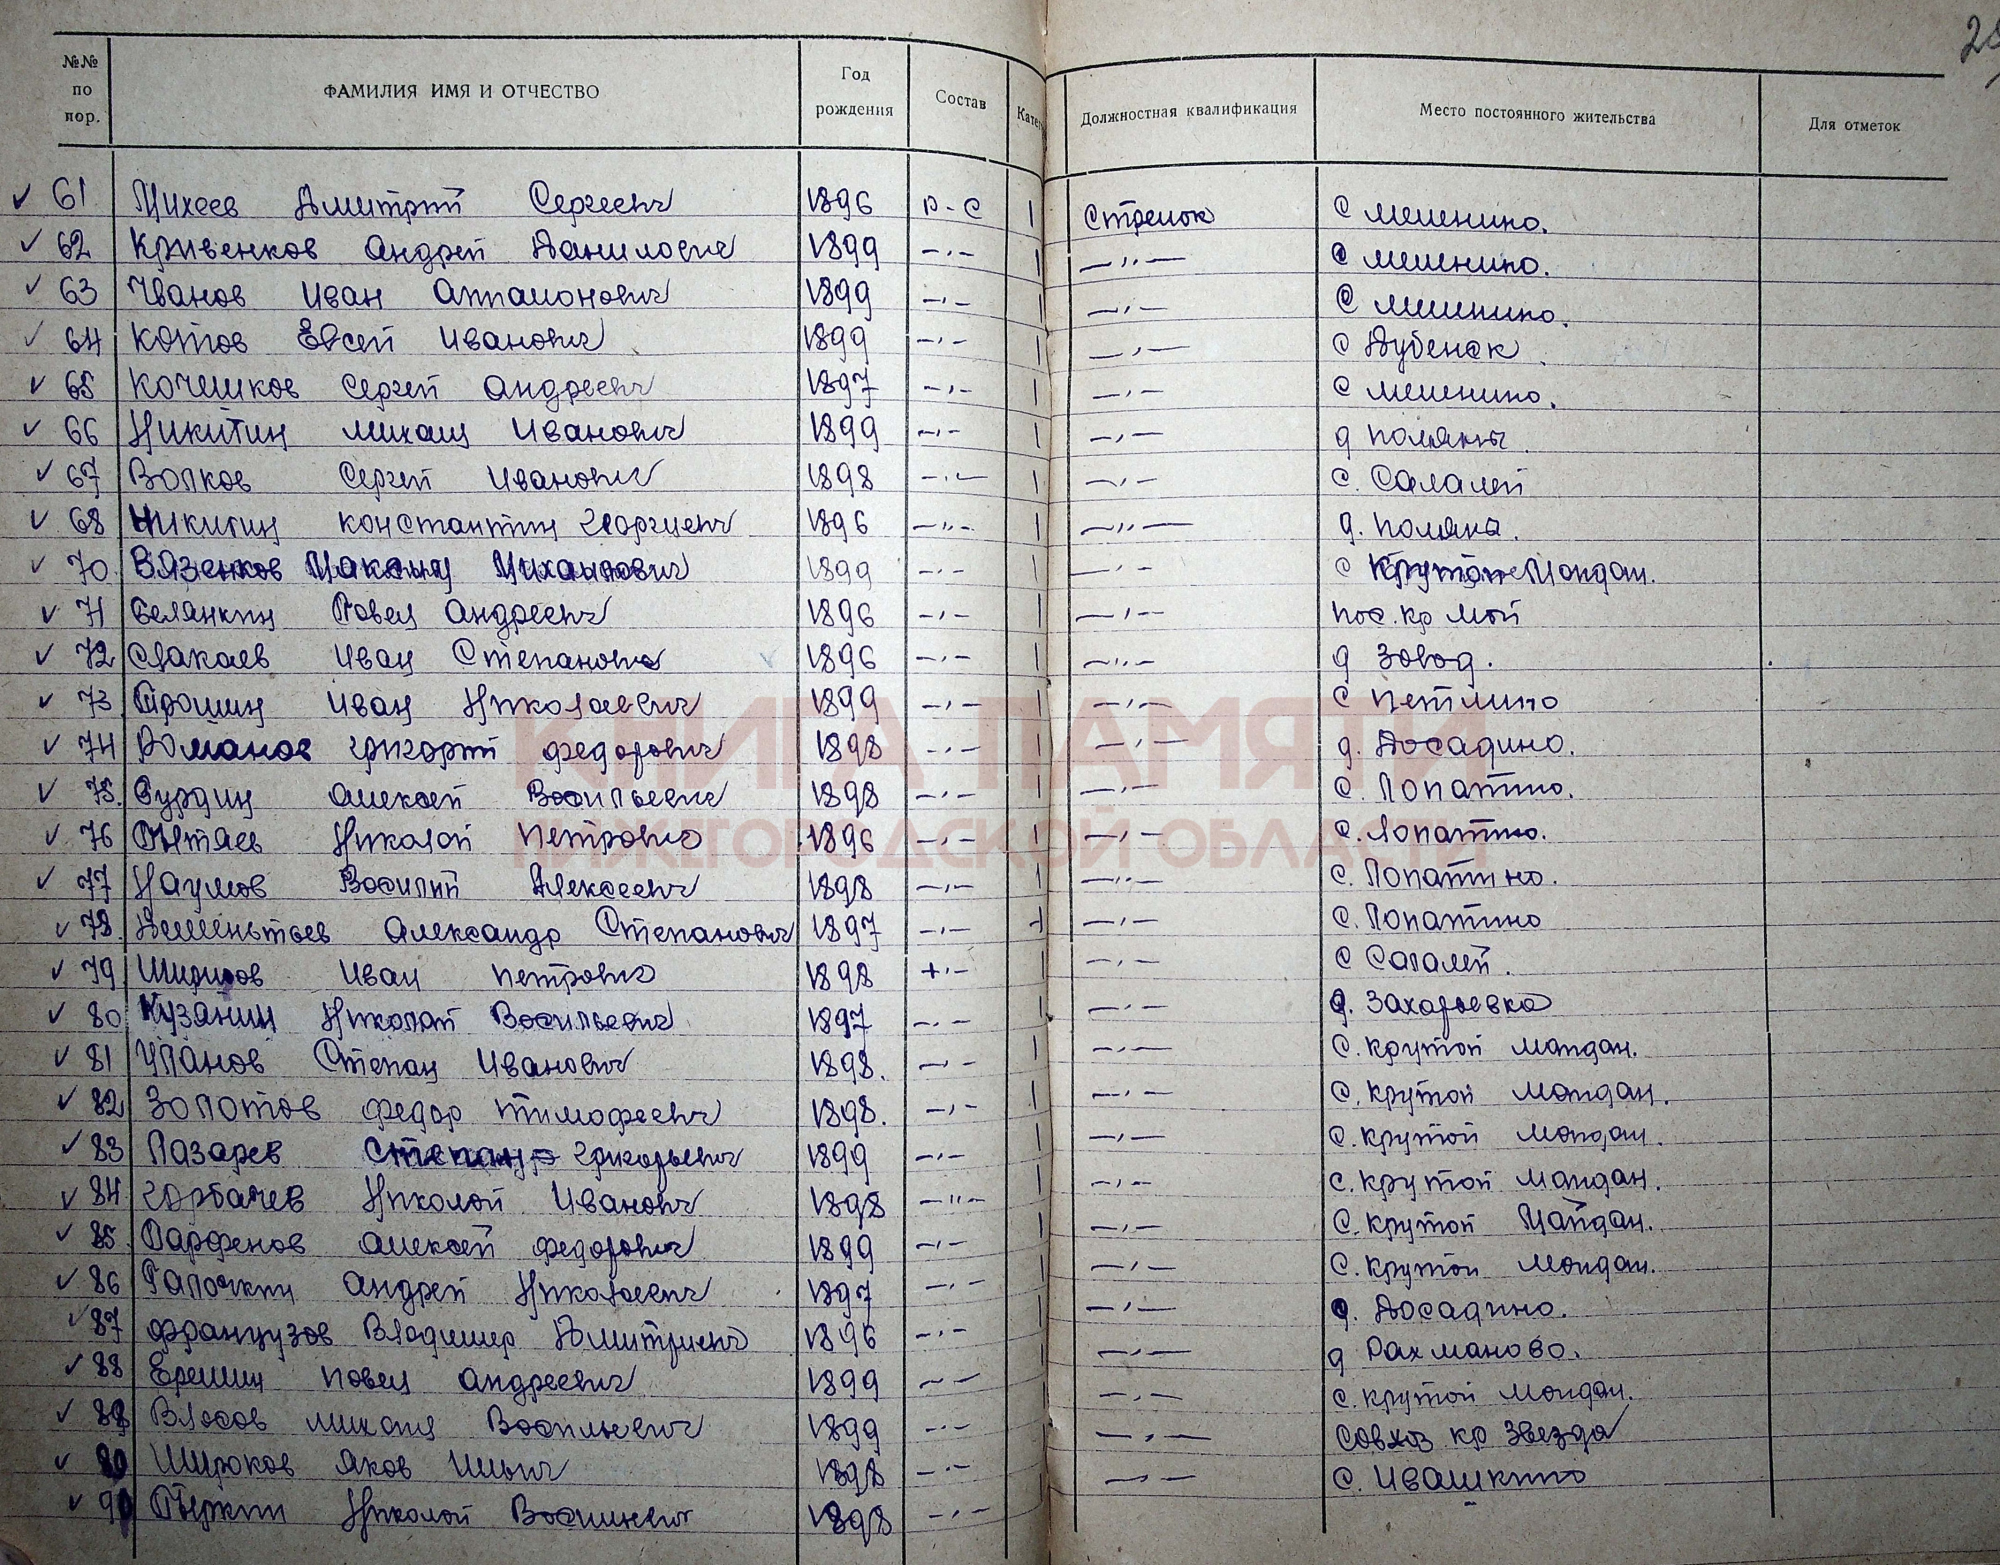 28
№№ по пор. ФАМИЛИЯ ИМЯ И ОТЧЕСТВО Год рождения Состав Катег Должностная квалификация Место постоянного жительства Для отметок
61 Михеев Дмитрий Сергеевич 1896 р-с 1 Стрелок с Меленино.
62 Кривенков Андрей Данилович 1899 -,- 1 -,,- с Меленино.
63 Иванов Иван Артамонович 1899 -,- 1 -,- с Меленино.
64 Котов Евсей Иванович 1899 -,- 1 -,- с Дубенск
65 Кочешков Сергей Андреевич 1897 -,- 1 -,- с Меленино.
66 Никитин Михаил Иванович 1899 -,- 1 -,- д Поляны
67 Волков Сергей Иванович 1898 -,- 1 -,- с. Салалей
68 Никитин Константин Георгиевич 1896 -,,- 1 -,,- д. Поляна.
70 Вязенков Максим Михайлович 1899 -,- 1 -,- с Крутой Майдан.
71 Селянкин Павел Андреевич 1896 -,- 1 -,- пос. кр Мой
72 Слакаев Иван Степанович 1896 -,- 1 -,,- д Завод.
73 Трошин Иван Николаевич 1899 -,- 1 -,- с Петлино
74 Романов Григорий Федорович 1898 -,- 1 -,- д. Досадино.
75. Сурдин Алексей Васильевич 1898 -,- 1 -,- с. Лопатино.
76 Пытаев Николай Петрович 1896 -,- 1 -,- с. Лопатино.
77 Наумов Василий Алексеевич 1898 -,- 1 -,,- с. Лопатино.
78. Дементьев Александр Степанович 1897 -,- 1 -,- с. Лопатино
79 Широков Иван Петрович 1898 -,- 1 -,- с Салалей.
80 Кузянин Николай Васильевич 1897 -,- 1 -,- д. Захарьевка
81 Уланов Степан Иванович 1898. -,- 1 -,- с. Крутой Майдан.
82 Золотов Федор Тимофеевич 1898. -,- 1 -,- с. Крутой Майдан.
83 Лазарев Степан Григорьевич 1899 -,- 1 -,- с. Крутой Майдан.
84 Горбачев Николай Иванович 1898 -,,- 1 -,- с. Крутой Майдан.
85. Парфенов Алексей Федорович 1899 -,- 1 -,- с. Крутой Майдан.
86 Галочкин Андрей Николаевич 1897 -,- 1 -,- с. Крутой Майдан.
87 Французов Владимир Дмитриевич 1896 -,- 1 -,- д. Досадино.
88 Еремин Павел Андреевич 1899 -,- 1 -,- д Рахманово.
89 Власов Михаил Васильевич 1899 -,- -,- с. Крутой Майдан.
Широков Яков Ильич 1898 -,- -,- Совхоз кр Звезда
Николай Васильевич 1898 -,- -,- с. Ивашкино
КНИГА ПАМЯТИ
НИЖЕГОРОДСКОЙ ОБЛАСТИ